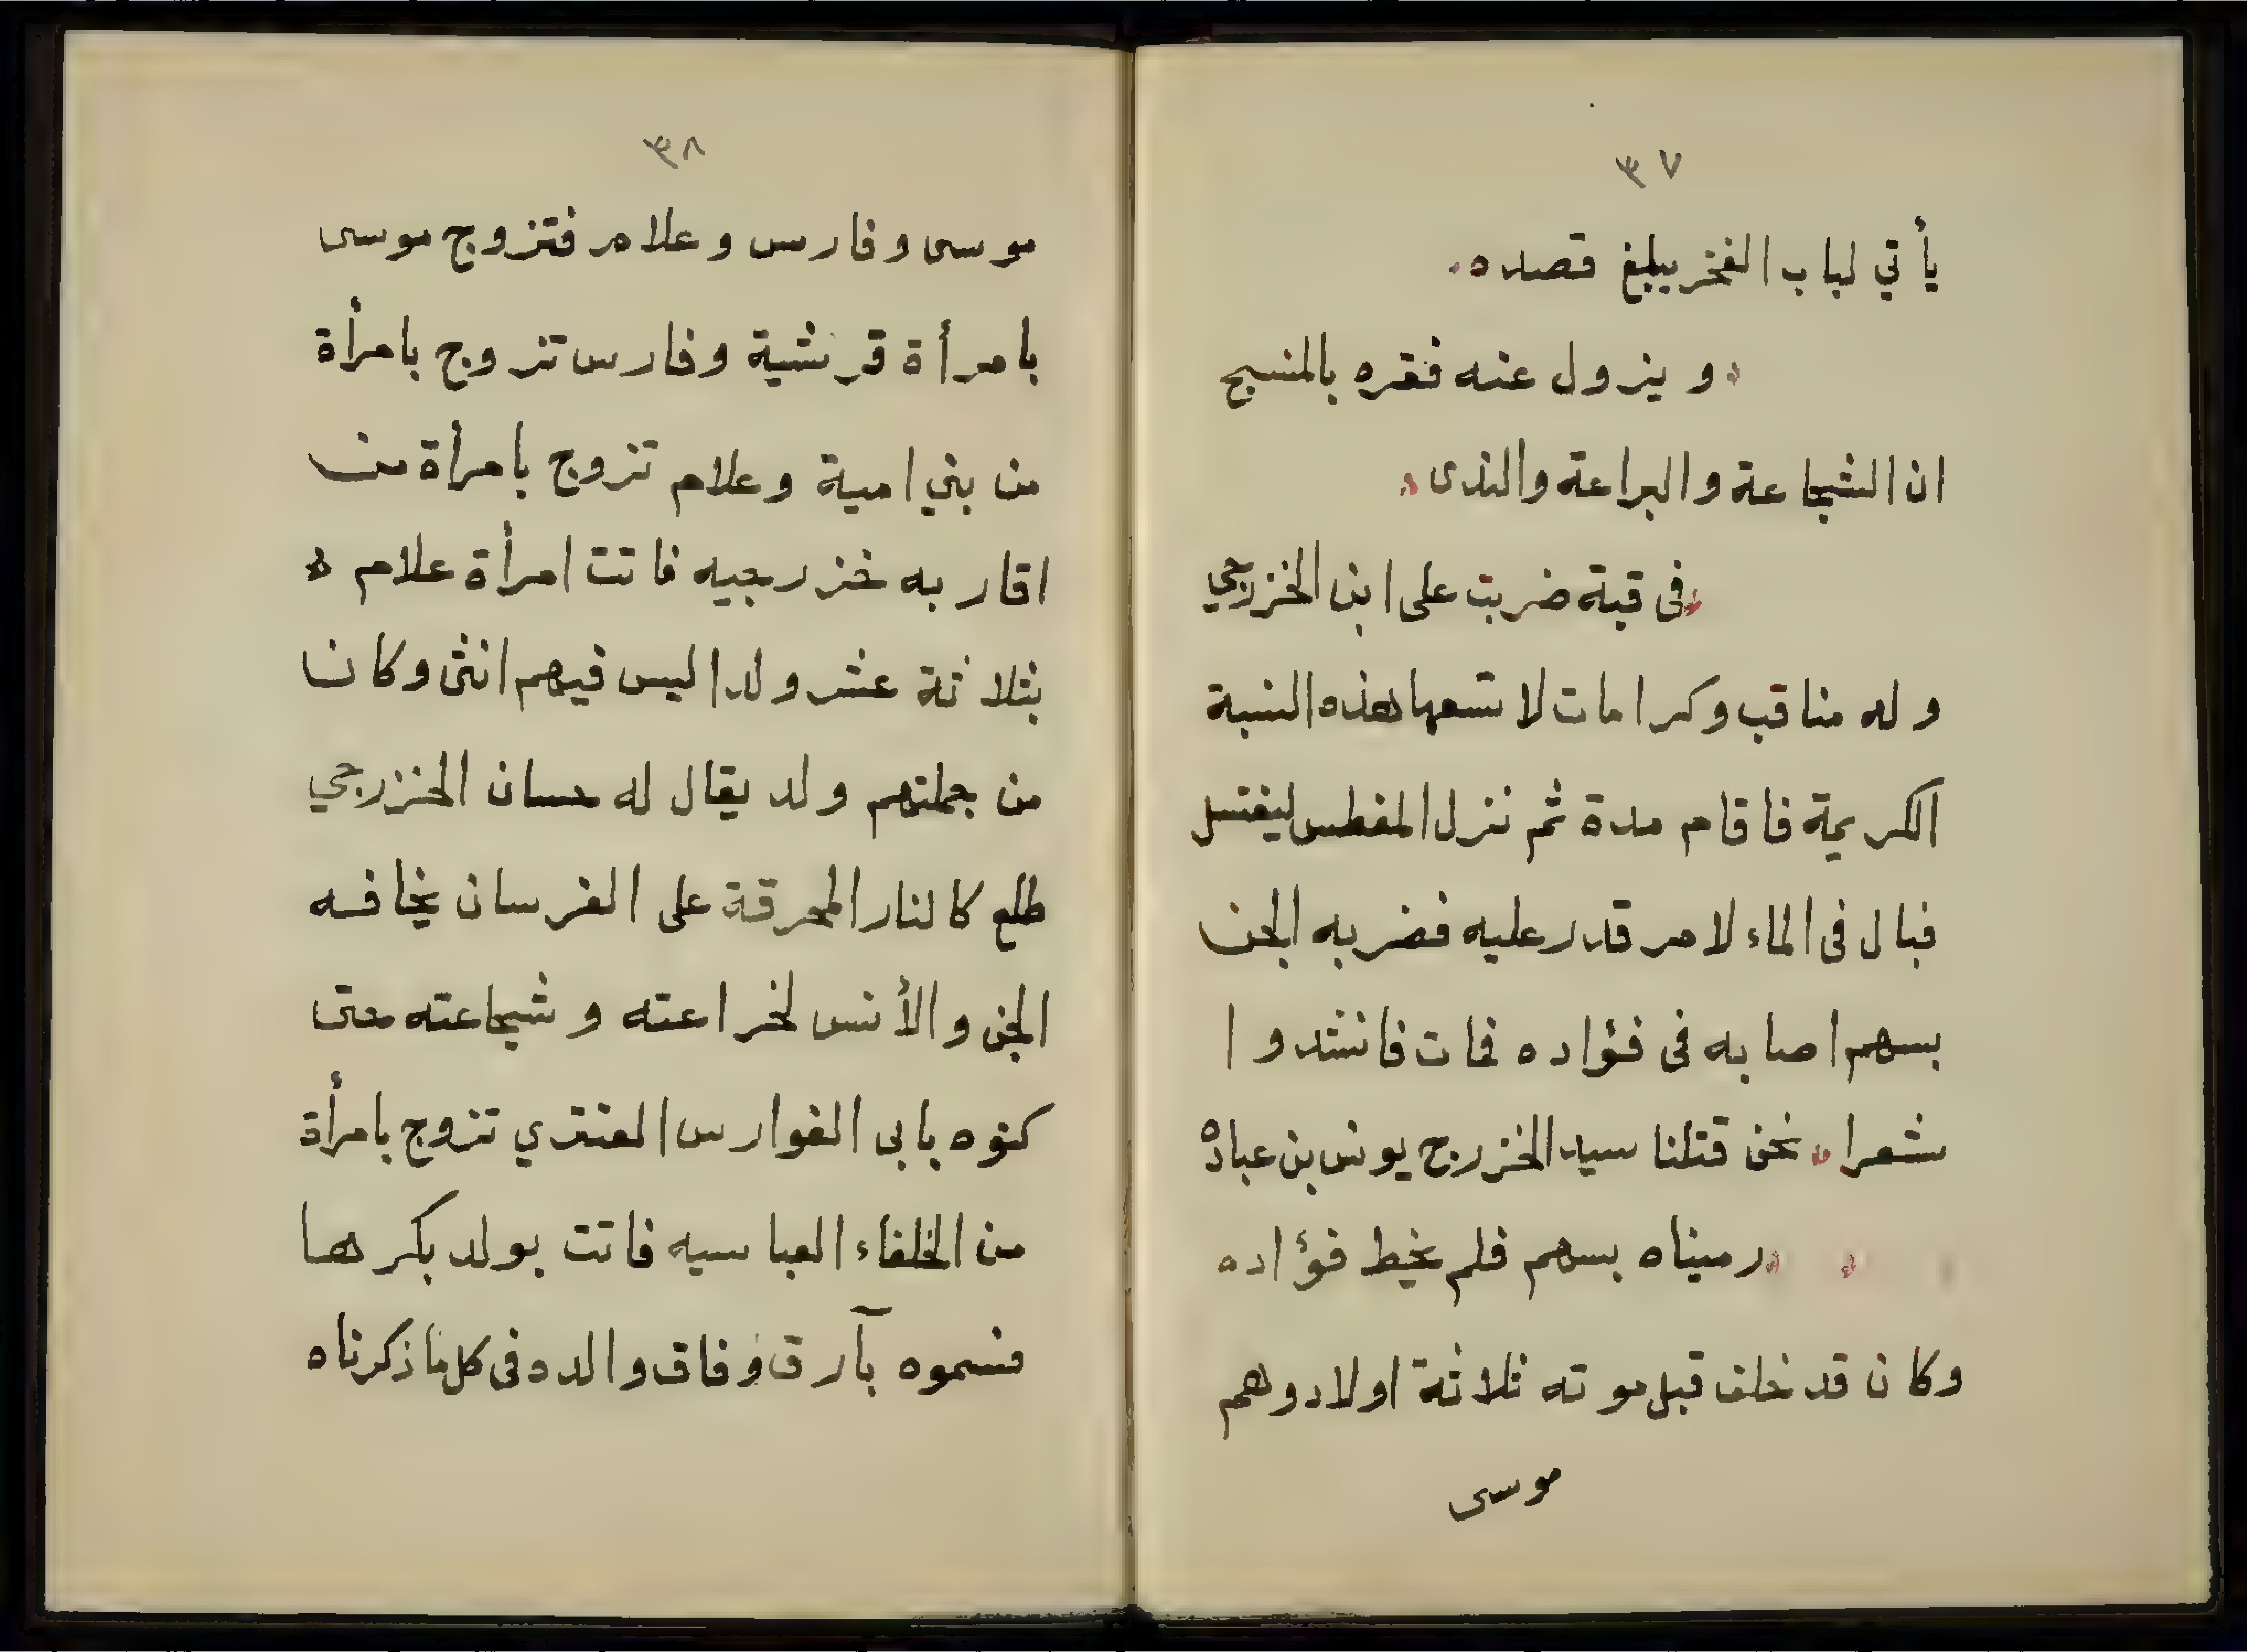 ٣٧
يأتي لباب الفخر يبلغ قصده
ويزول عنه فقره بالمنسج
ان الشجاعة والبراعة والندى
فى قبة ضربت على ابن الخزرجي
وله مناقب وكرامات لا تسعها هذه النسبة
الكريمة فاقام مدة ثم نزل المغطس ليغتسل
فبال فى الماء لامر قدر عليه فضربه الجن
بسهم اصابه فى فؤاده فمات فانشدوا
شعرا نحن قتلنا سيد الخزرج يونس بن عباده
رميناه بسهم فلم يخيط فؤاده
وكان قد خلف قبل موته ثلاثة اولاد وهم
موسى
٣٨
موسى وفارس وعلام فتزوج موسى
بامرأة قرشية وفارس تزوج بامرأة
من بني امية وعلام تزوج بامرأة من
اقاربه خزرجيه فاتت امرأة علام
بثلاثة عشر ولدا ليس فيهم انثى وكان
من جملتهم ولد يقال له حسان الخزرجي
طلع كالنار المحرقة على الفرسان يخافه
الجن والأنس لخراعته وشجاعته حتى
كنوه بابى الفوارس العنتري تزوج بامرأة
من الخلفاء العباسيه فاتت بولد بكرها
فسموه بآرق وفاق والده فى كل ما ذكرناه